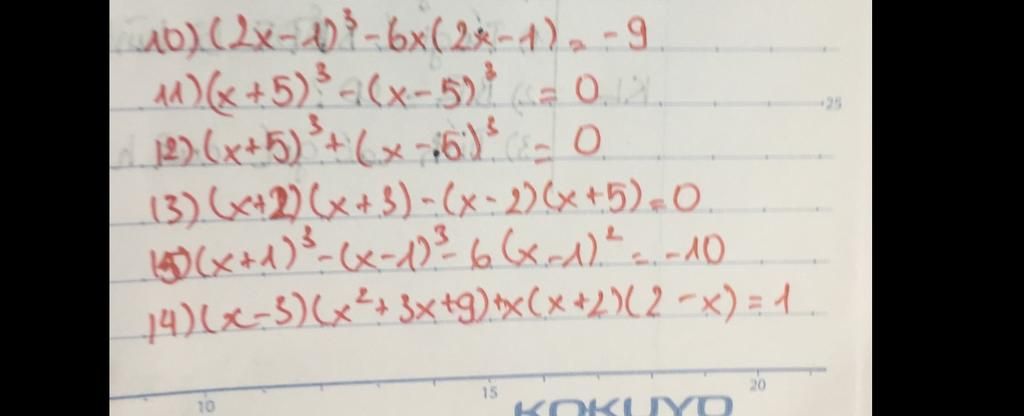 10) (2x-1)³ - 6x(2x-1) = -9
11) (x+5)³ - (x-5)³ = 0
25
12) (x+5)³ + (x-5)³ = 0
13) (x+2)(x+3) - (x-2)(x+5) = 0
15) (x+1)³ - (x-1)³ - 6(x-1)² = -10
14) (x-3)(x²+3x+9) + x(x+2)(2-x) = 1
10 15 20
KOKUYO